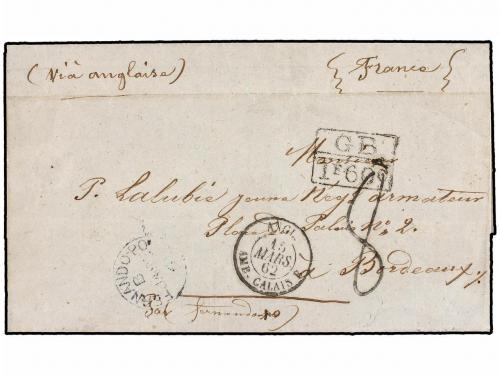 (Viâ anglaise)
France
GB
1F60c
Monsieur
P. Lalubie jeune Negt armateur
Place Palais No. 2.
à Bordeaux
ANGL.
15
MARS
62
AMB. CALAIS
8
NANDO-PO
B